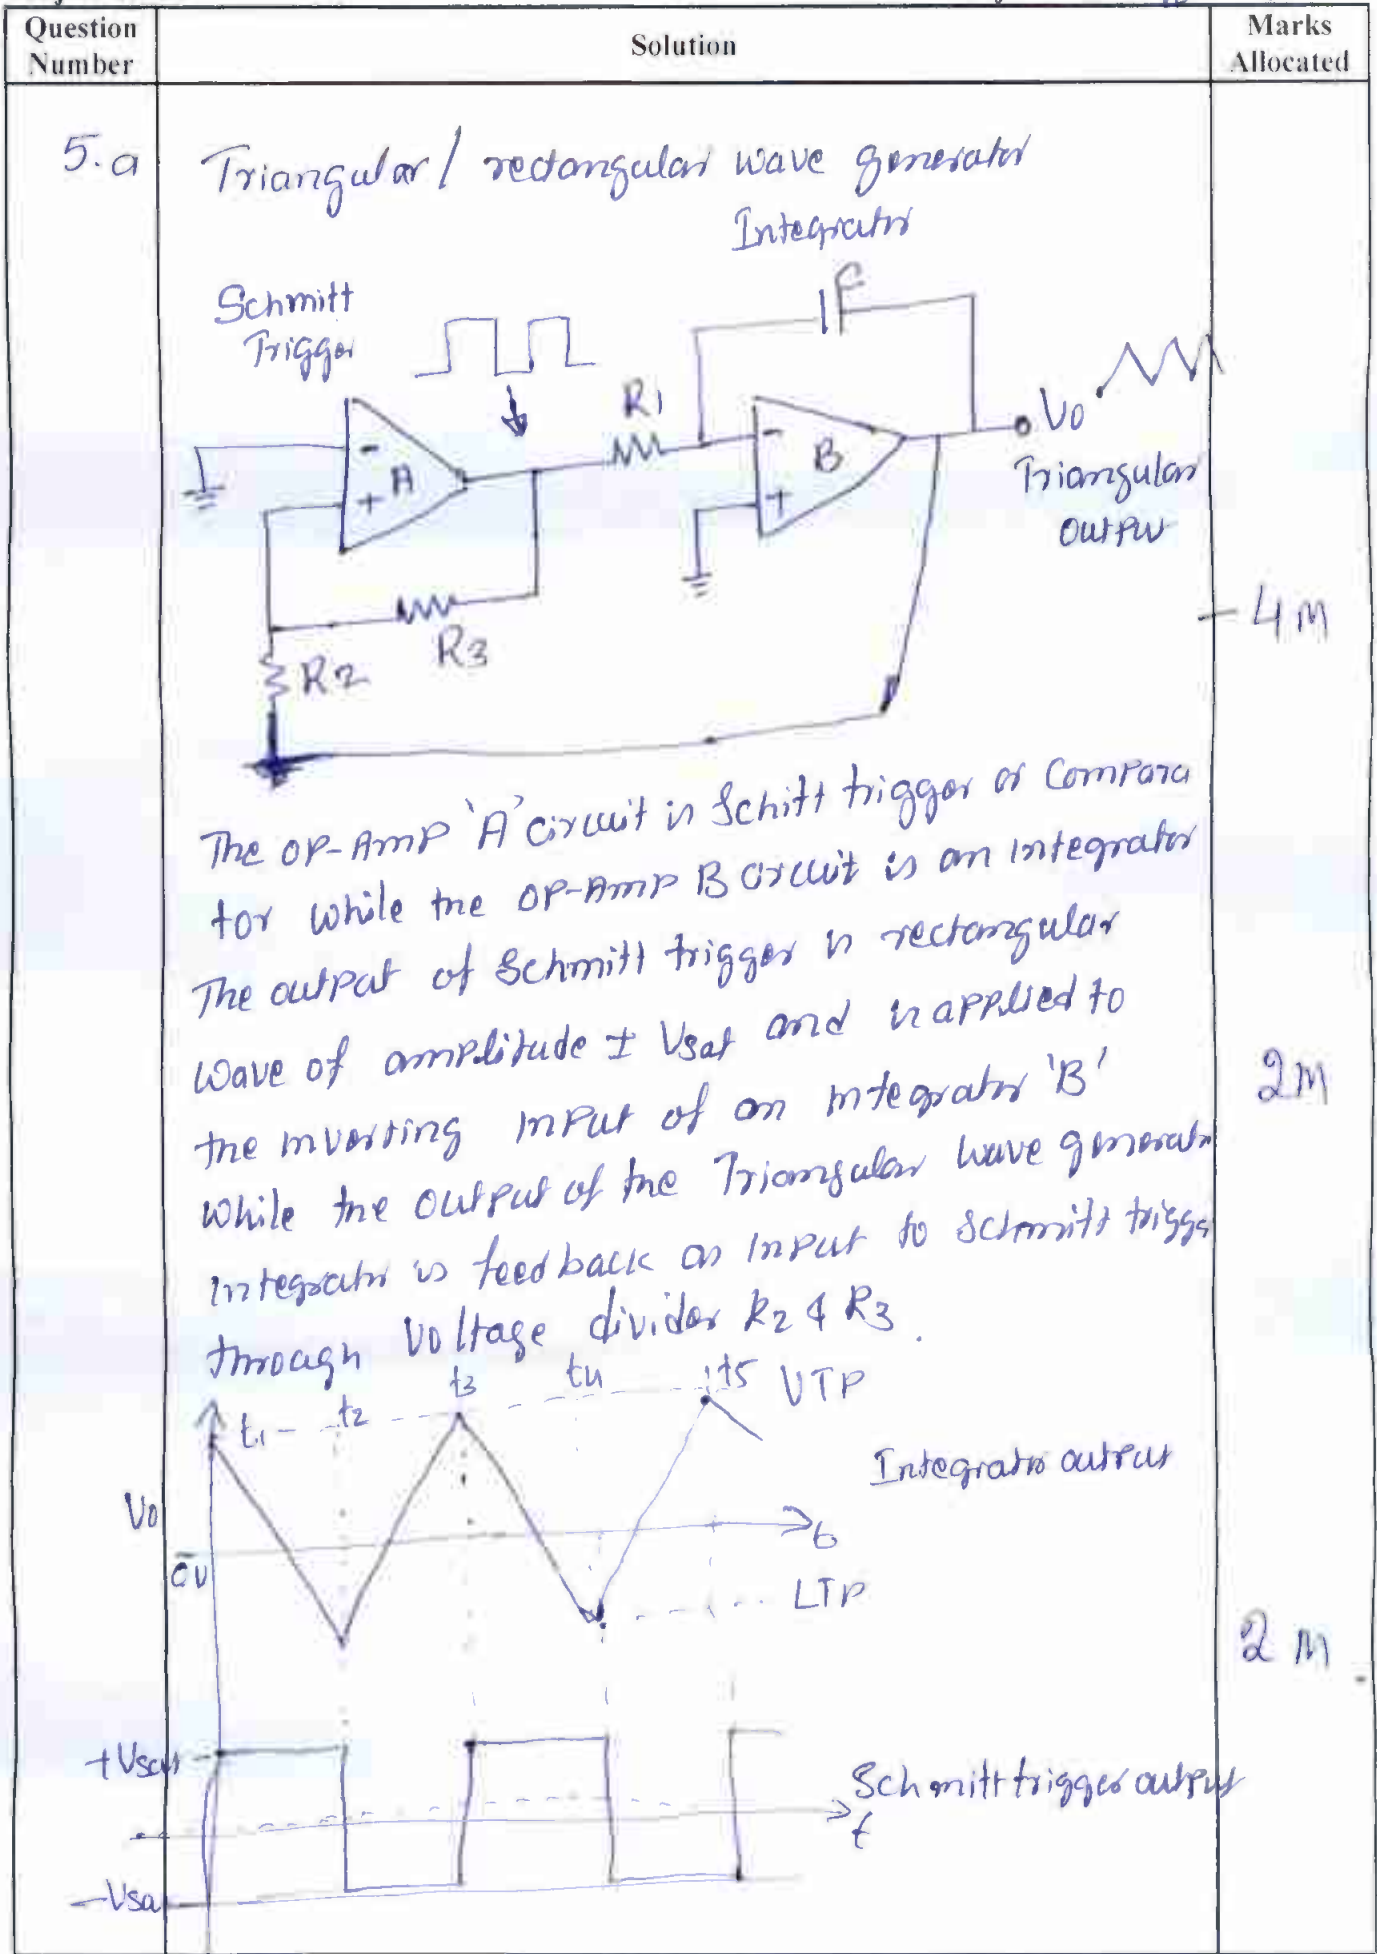 Question Number
Solution
Marks Allocated
5.a
Triangular / rectangular wave generator
Integrator
Schmitt
Trigger
C
R1
-
A
+
-
B
+
Vo
Triangular
Output
R3
R2
4M
The OP-Amp 'A' circuit is Schitt trigger or Compara
tor while the OP-Amp B circuit is an integrator
The output of Schmitt trigger is rectangular
wave of amplitude ± Vsat and is applied to
the inverting input of an integrator 'B'
2M
while the output of the Triangular wave generator
Integrator is feedback as Input to Schmitt trigger
through Voltage divider R2 & R3.
t1
t2
t3
t4
t5
UTP
Integrator output
Vo
t
0V
LTP
2M
+Vsat
Schmitt trigger output
t
-Vsa